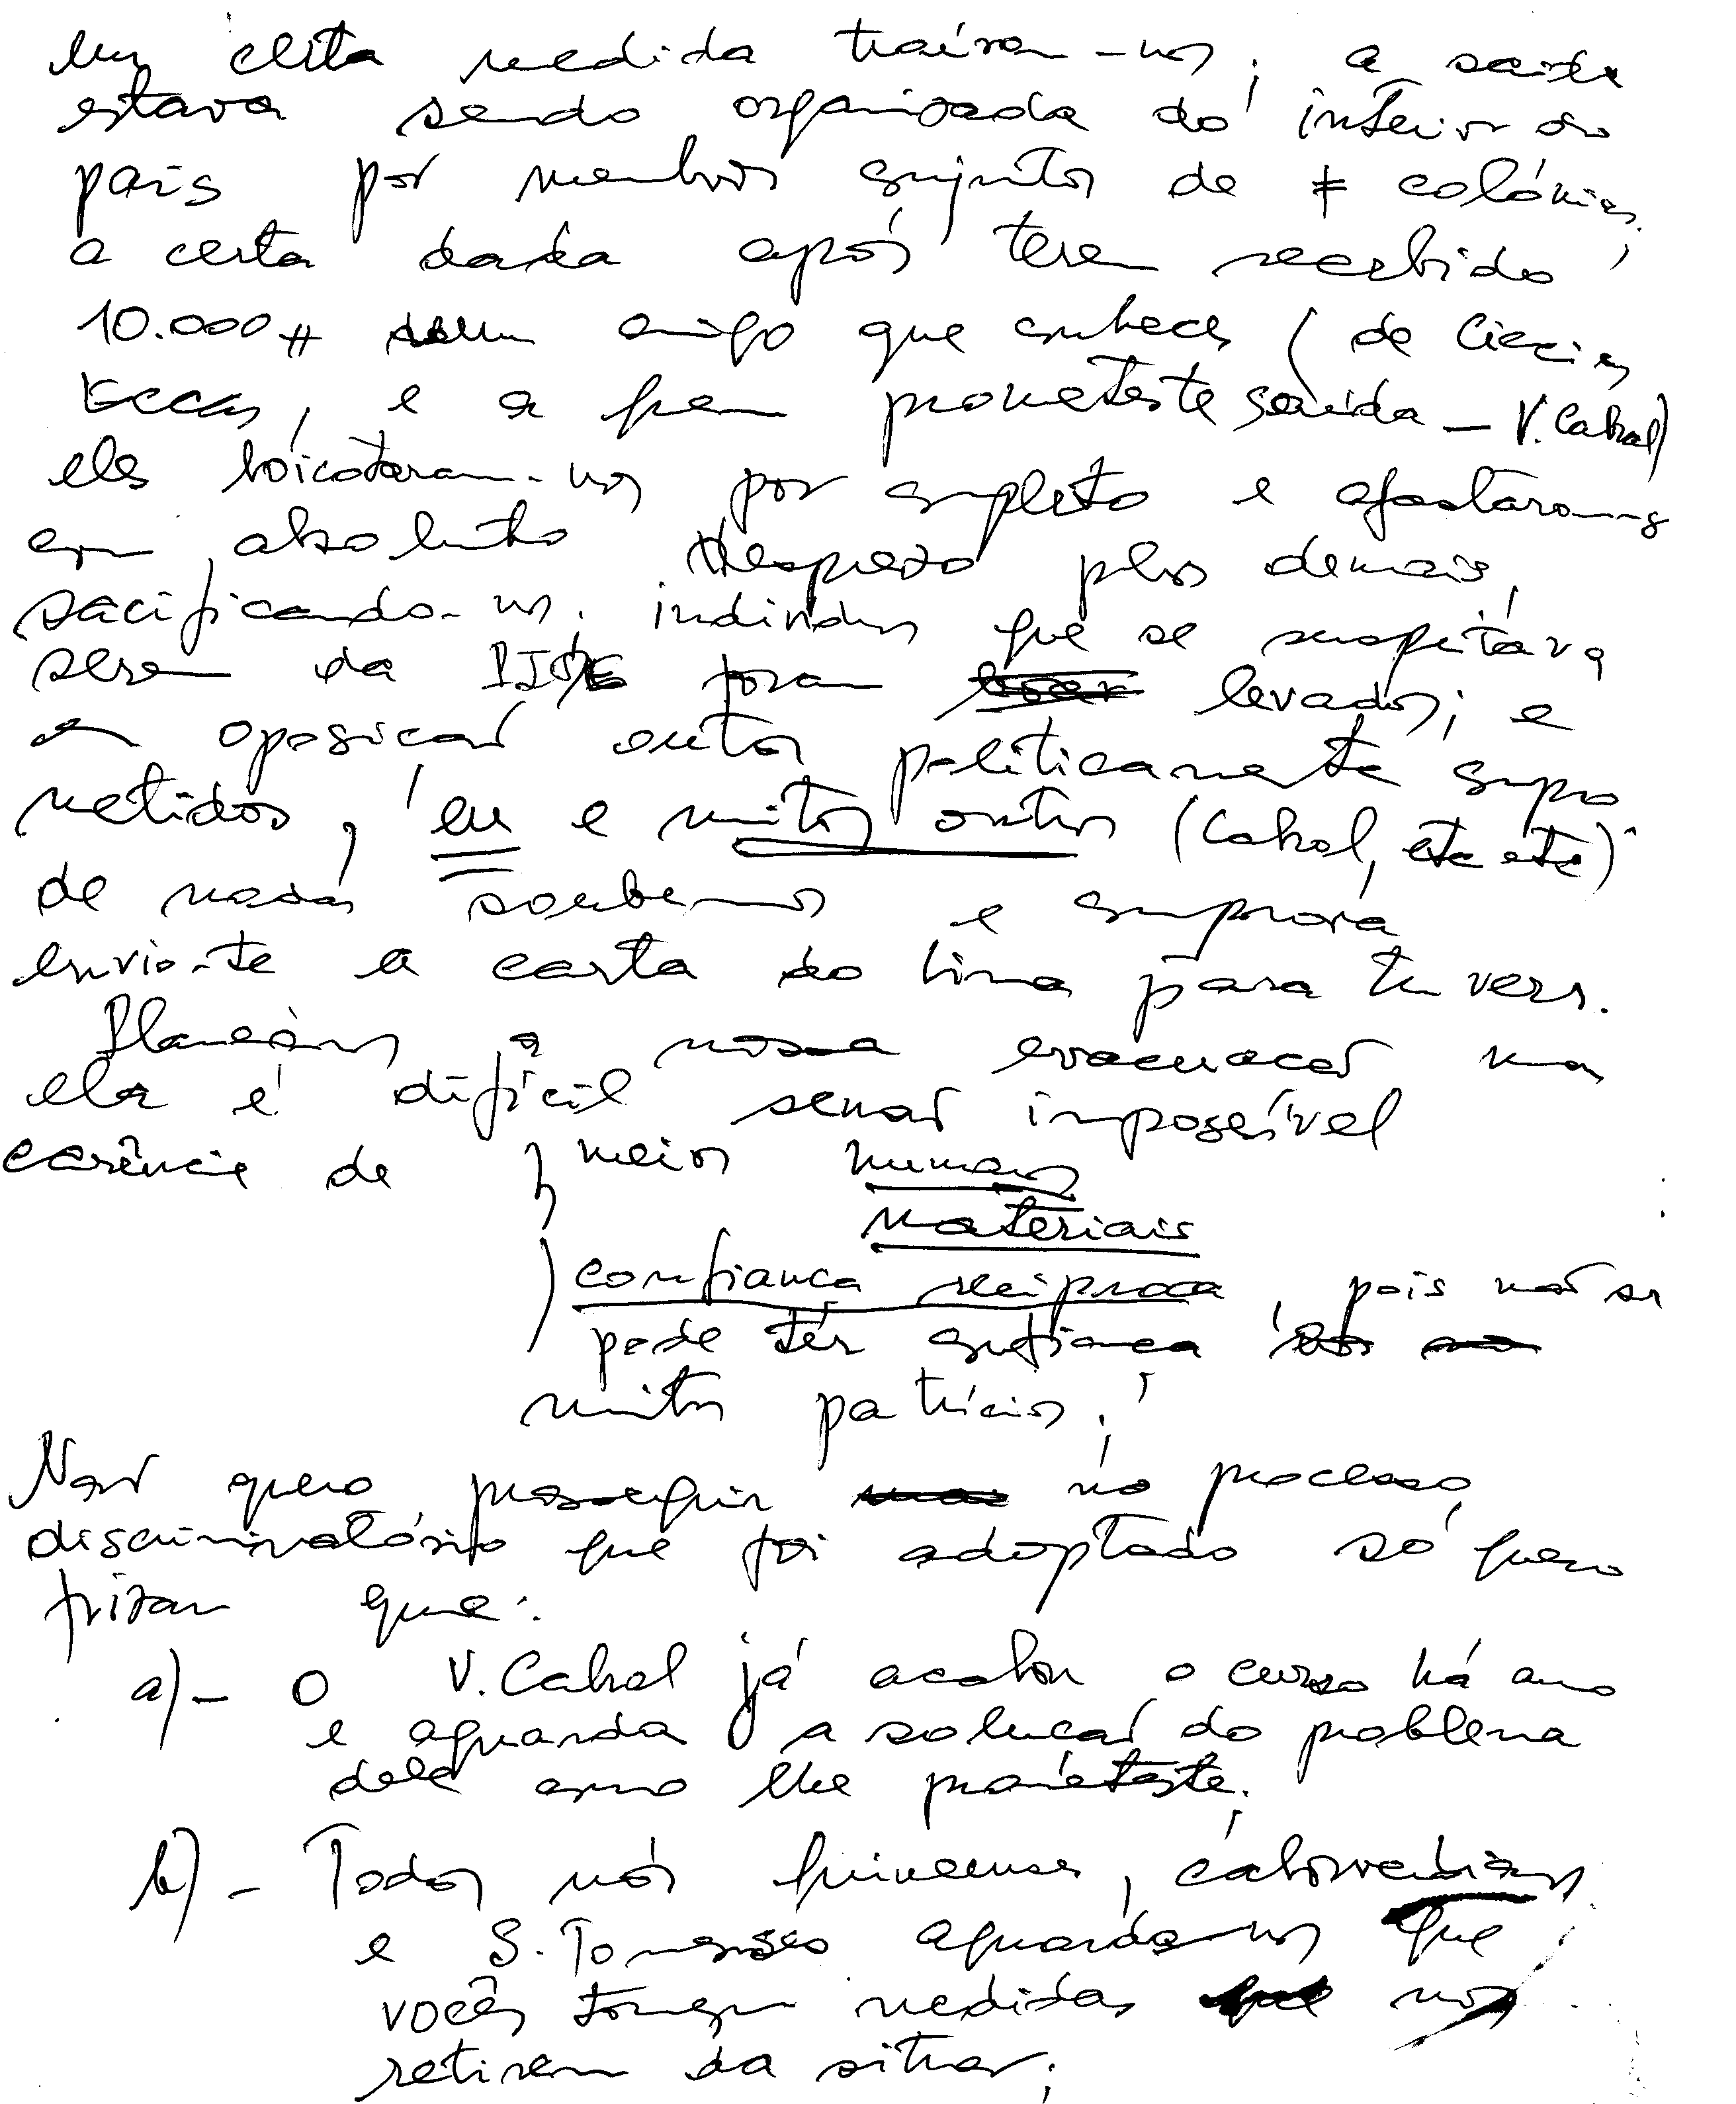 em certa medida traíram-nos; a saída
estava sendo organizada do interior do
país por membros conjuntos de ≠ colónias,
a certa dada após terem recebido
10.000# dum amigo que conheces (de Ciencias
Eccas, e a quem prometeste saída – V. Cabral)
eles boicotaram-nos por completo e afastaram-se
com absoluto desprezo pelos demais,
sacrificando-nos. individuos que se suspeitava
serem da PIDE foram levados; e
em oposicão outros politicamente compro
metidos, eu e muitos outros (Cabral, etc etc)
de nada soubemos e comprova
envio-te a carta do Lima para tu veres.
Planeamos a nossa evacuacão mas
ela é difícil senão impossível
carência de meios humanos
materiais
confianca recíproca, pois não se
pode ter confianca
muitos patrícios.
Não quero prosseguir no processo
discriminatório que foi adoptado só quero
frizar que:
a) – O V. Cabral já acabou o curso há ano
e aguarda a solucão do problema
dele como lhe prometeste;
b) – Todos nós guineenses, caboverdianos
e S. Tomenses aguardamos que
vocês tomem medidas nos
retirem da situar;